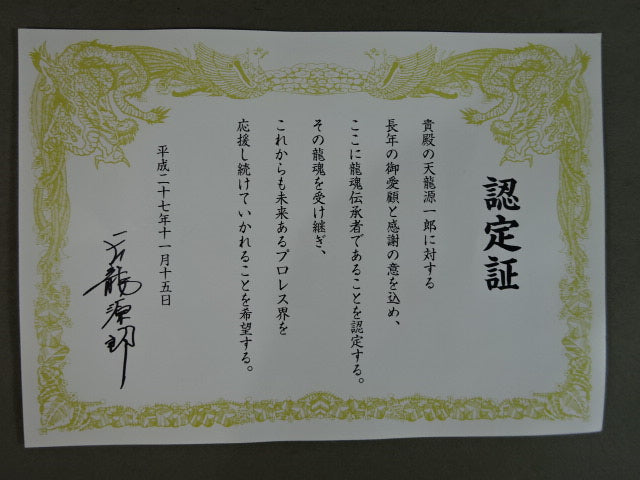 認定証
貴殿の天龍源一郎に対する
長年の御愛顧と感謝の意を込め、
ここに龍魂伝承者であることを認定する。
その龍魂を受け継ぎ、
これからも未来あるプロレス界を
応援し続けていかれることを希望する。
平成二十七年十一月十五日
天龍源一郎